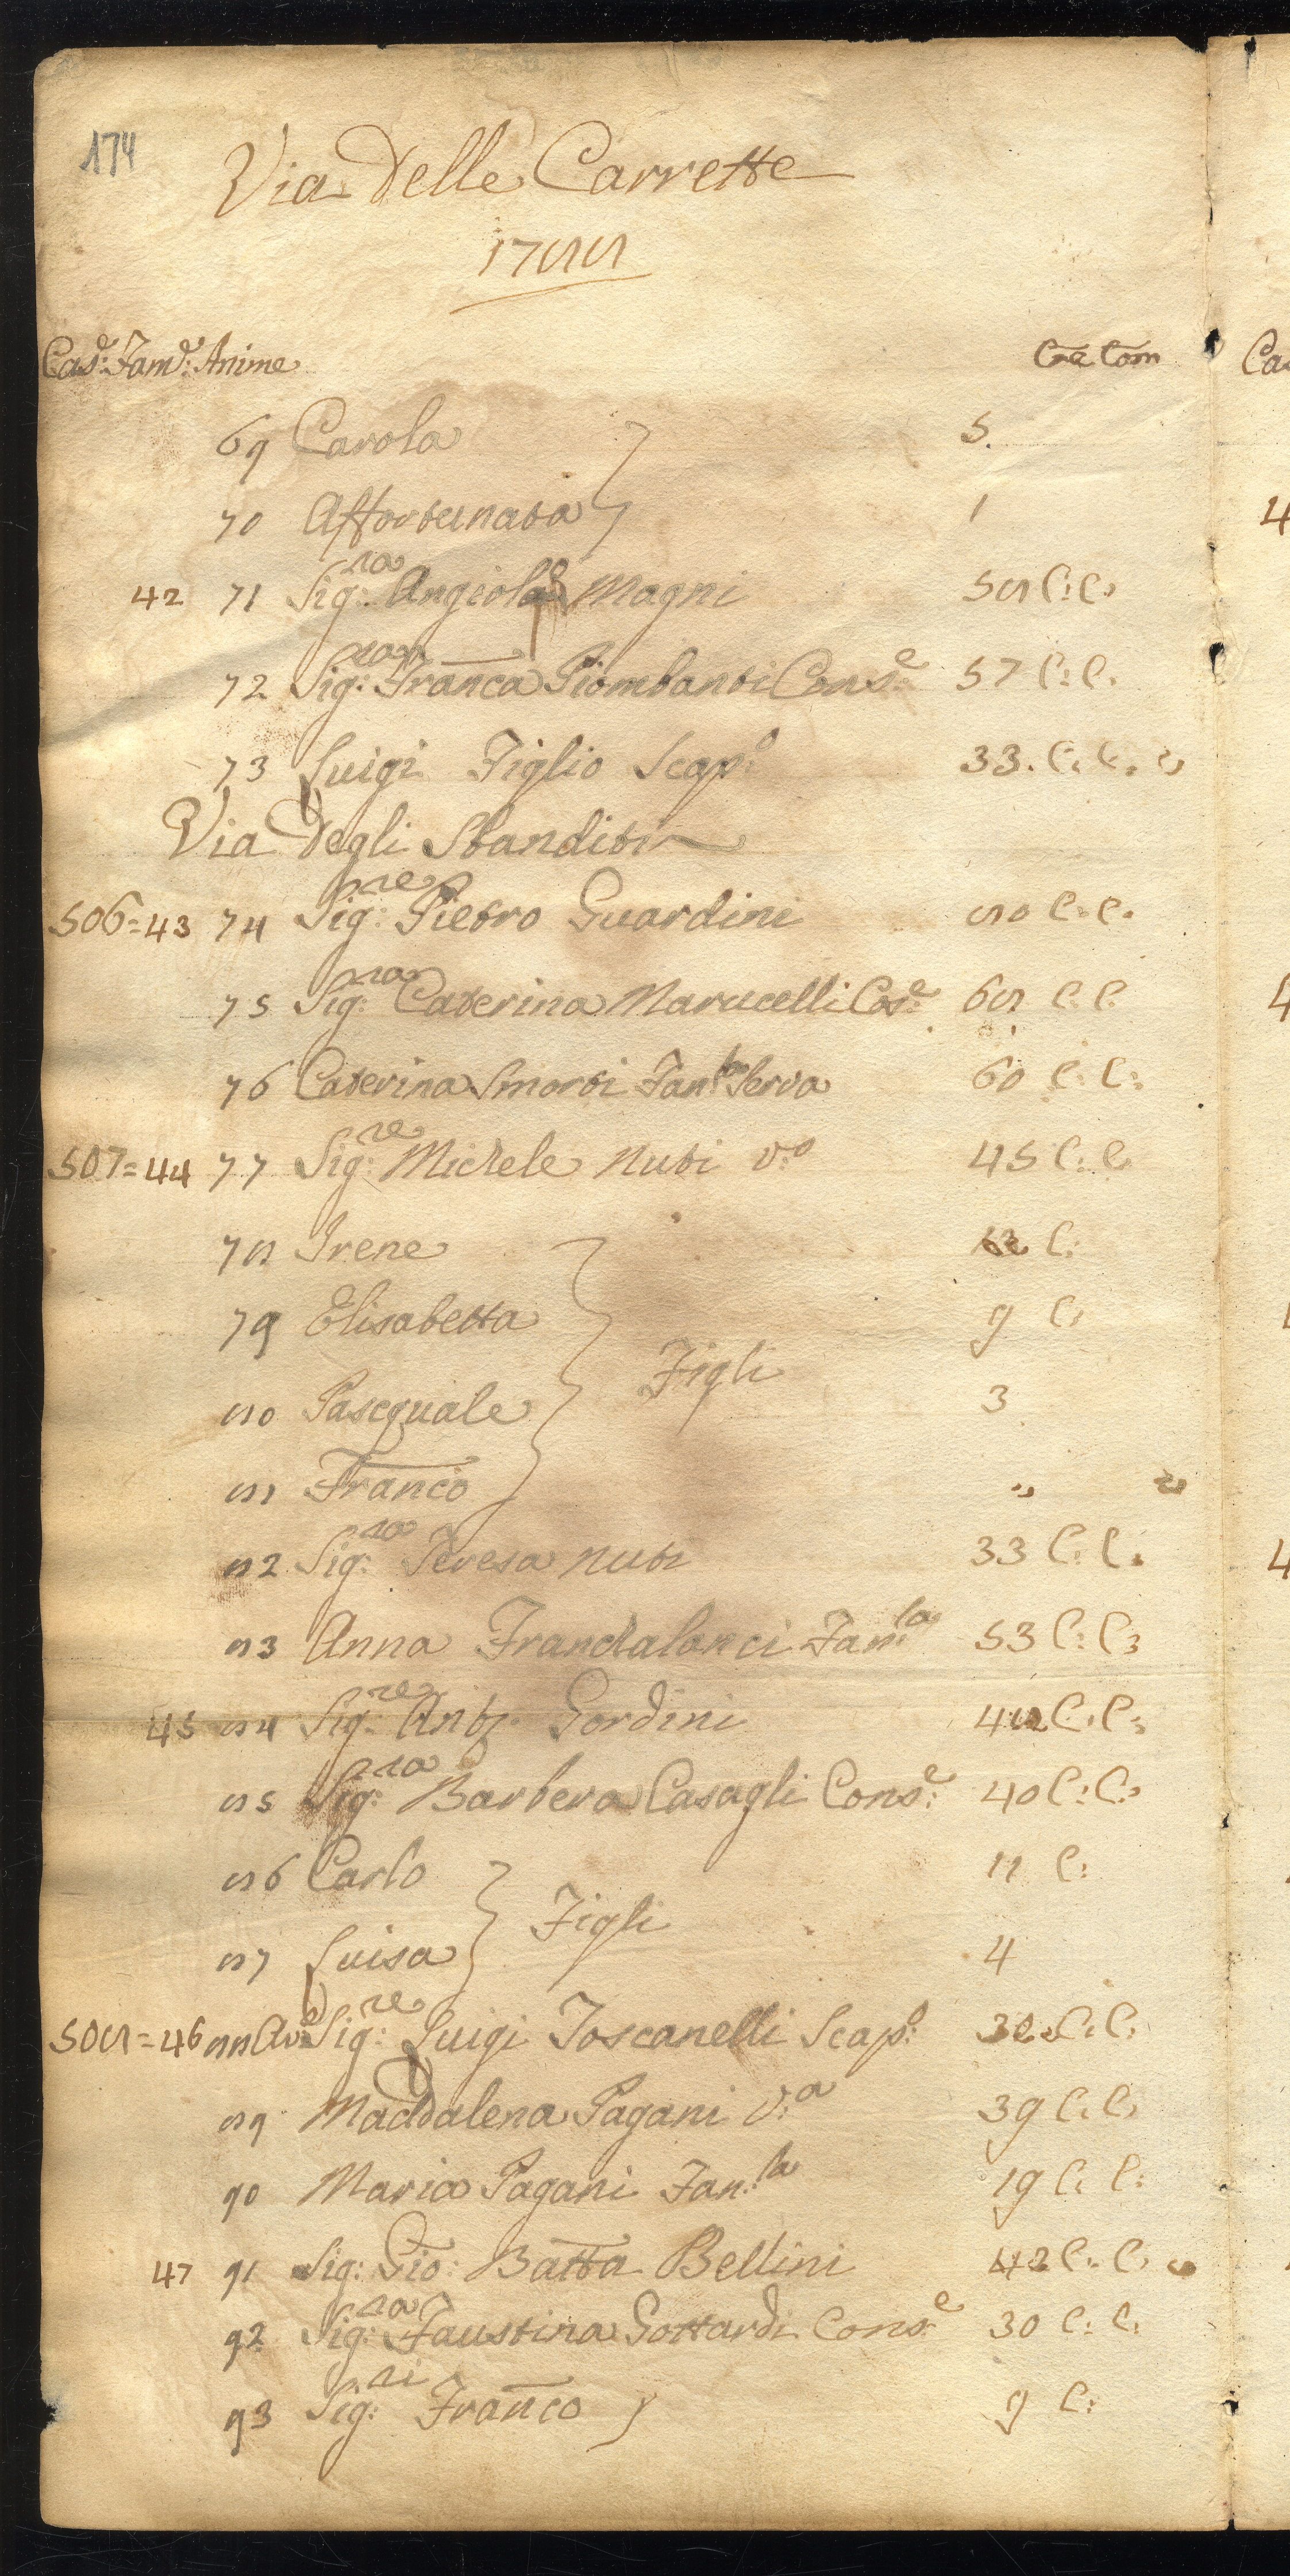 174
Via Delle Carrette
1788
Cas.e Fam.e Anime Età Com
69 Carola 5.
70 Affortunata 1
42 71 Sig.ra Angiola Magni 58 C: C:
72 Sig:ra Franca Piombanti Cons.e 57 C: C.
73 Luigi Figlio Scap:o 33. C: C.
Via Degli Sbanditi
506=43 74 Sig:re Pietro Guardini 80 C: C.
75 Sig:ra Caterina Marucelli Cos:e 68 C: C.
76 Caterina Smorti Fan:la Serva 60 C: C:
507=44 77 Sig:re Michele Nuti V:o 45 C: C
78 Irene C:
79 Elisabetta 9 C:
Figli
80 Pascquale 3
81 Franco "
82 Sig:ra Teresa Nuti 33 C: C.
83 Anna Franchalanci Fam:la 53 C: C:
45 84 Sig:re Ant.o Gordini 42 C: C:
85 Sig:ra Barbera Casagli Cons:e 40 C: C:
86 Carlo 11 C:
Figli
87 Luisa 4
508=46 88 Sig:re Luigi Toscanelli Scap:o C: C:
89 Maddalena Pagani V:a 39 C: C:
90 Maria Pagani Fan:la 19 C: C:
47 91 Sig: Gio: Batta Bellini 42 C: C:
92 Sig:ra Faustina Gottardi Cons:e 30 C: C:
93 Sig:ri Franco 9 C: